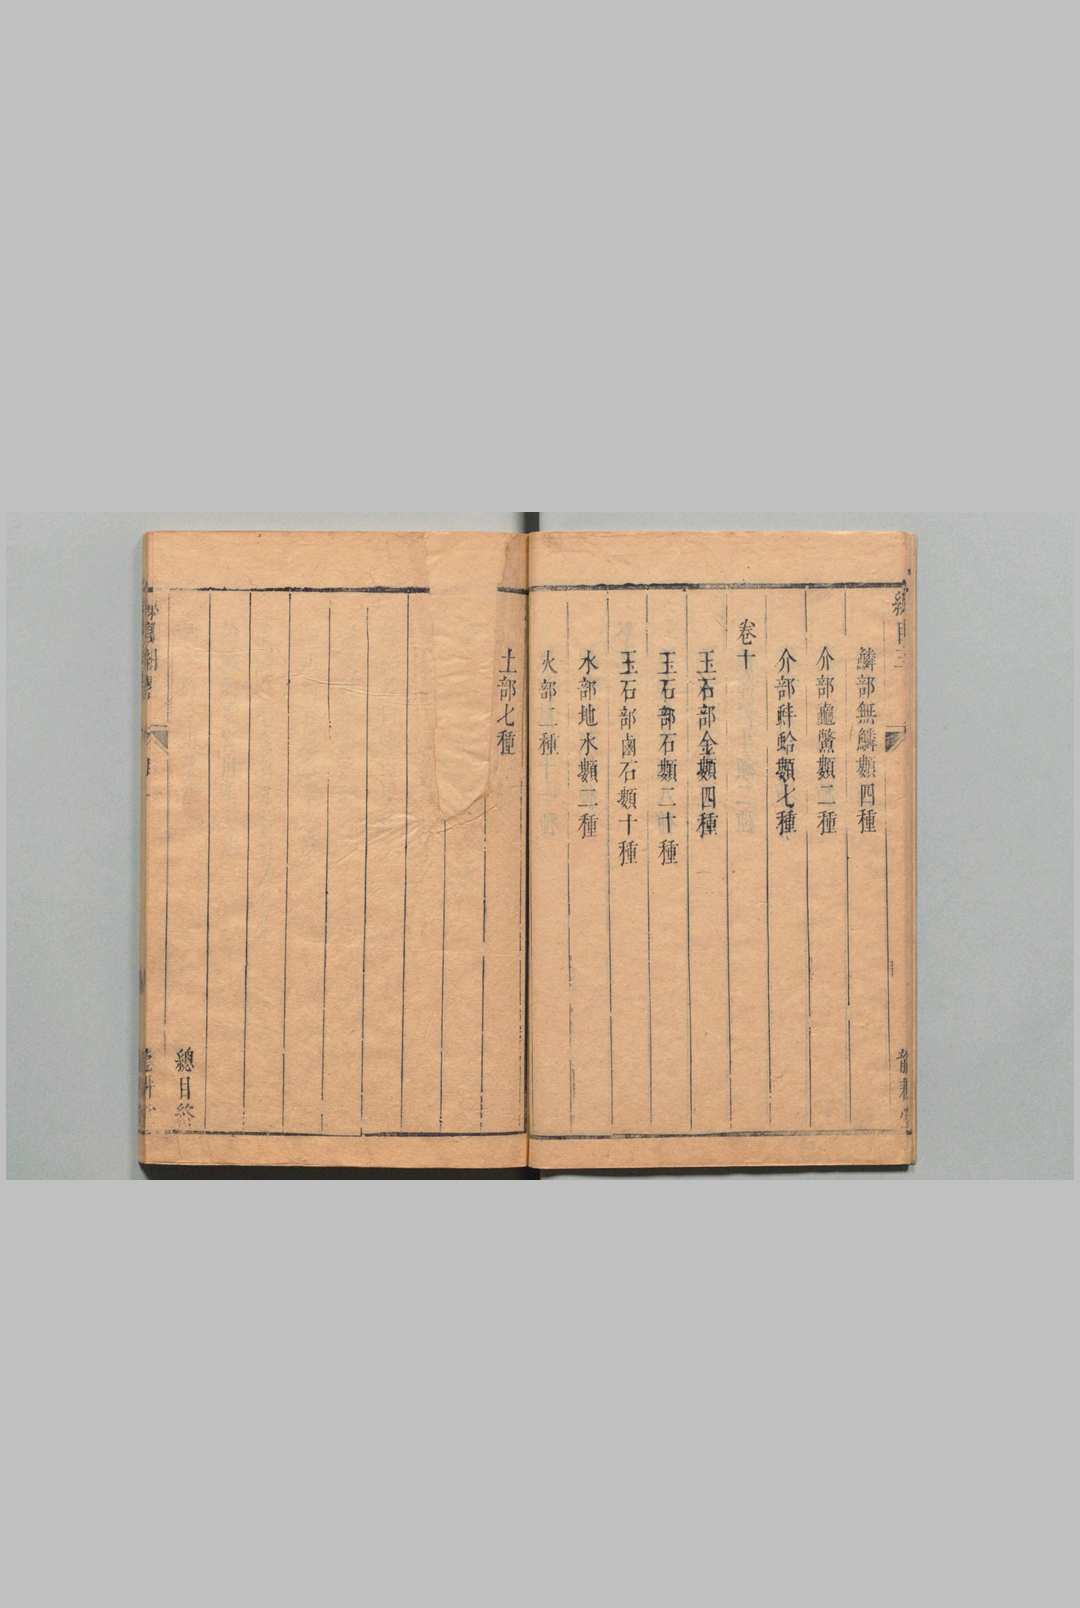 總目三
鱗部無鱗類四種
介部龜鱉類二種
介部蚌蛤類七種
卷十
玉石部金類四種
玉石部石類二十種
玉石部鹵石類十種
水部地水類二種
火部二種
土部七種
總目終